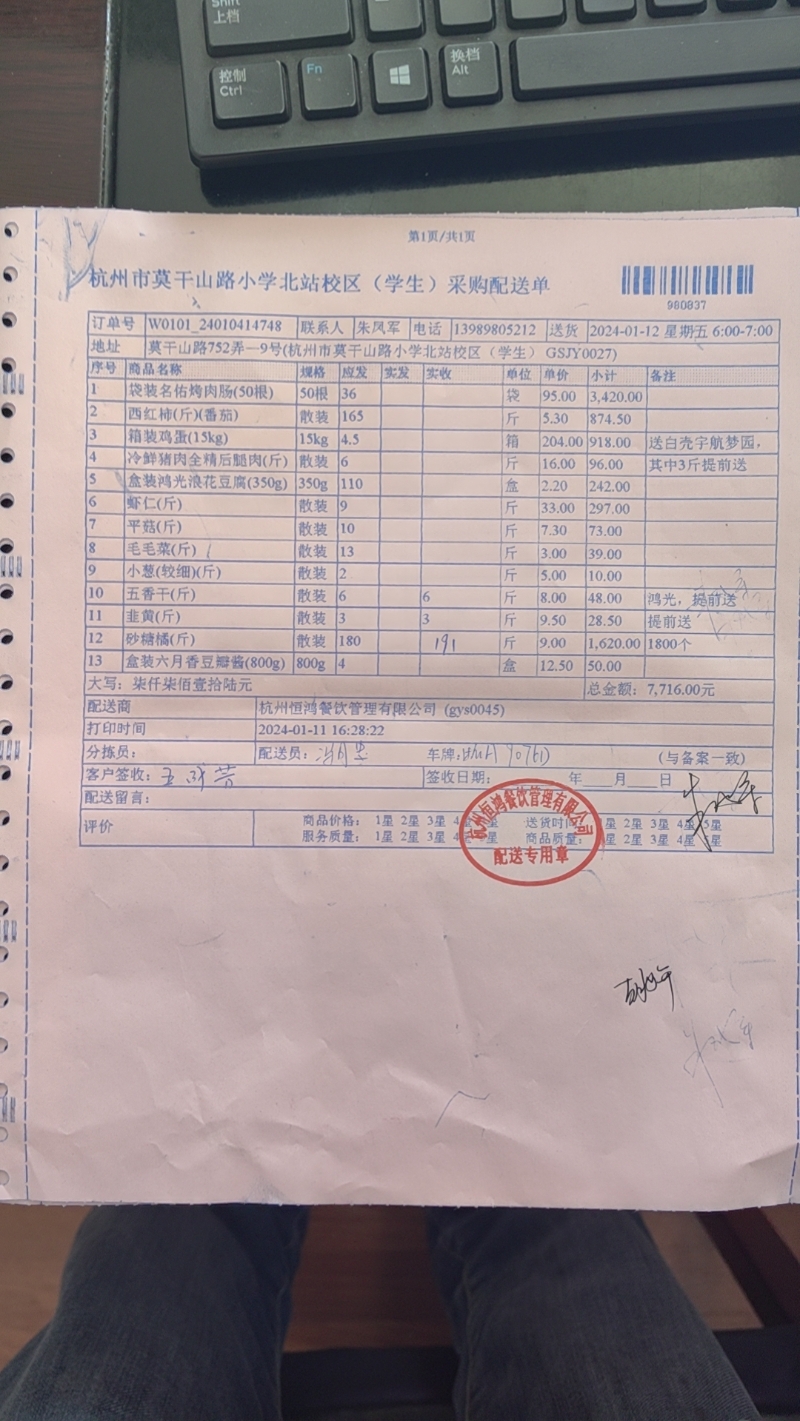 Shift
上档
控制
Ctrl
Fn
换档
Alt
第1页/共1页
杭州市莫干山路小学北站校区（学生）采购配送单
980837
订单号 W0101_24010414748 联系人 朱凤军 电话 13989805212 送货 2024-01-12 星期五 6:00-7:00
地址 莫干山路752弄一9号(杭州市莫干山路小学北站校区（学生） GSJY0027)
序号 商品名称 规格 应发 实发 实收 单位 单价 小计 备注
1 袋装名佑烤肉肠(50根) 50根 36 袋 95.00 3,420.00
2 西红柿(斤)(番茄) 散装 165 斤 5.30 874.50
3 箱装鸡蛋(15kg) 15kg 4.5 箱 204.00 918.00 送白壳宇航梦园，
4 冷鲜猪肉全精后腿肉(斤) 散装 6 斤 16.00 96.00 其中3斤提前送
5 盒装鸿光浪花豆腐(350g) 350g 110 盒 2.20 242.00
6 虾仁(斤) 散装 9 斤 33.00 297.00
7 平菇(斤) 散装 10 斤 7.30 73.00
8 毛毛菜(斤) 散装 13 斤 3.00 39.00
9 小葱(较细)(斤) 散装 2 斤 5.00 10.00
10 五香干(斤) 散装 6 6 斤 8.00 48.00 鸿光，提前送
11 韭黄(斤) 散装 3 3 斤 9.50 28.50 提前送
12 砂糖橘(斤) 散装 180 191 斤 9.00 1,620.00 1800个
13 盒装六月香豆瓣酱(800g) 800g 4 盒 12.50 50.00
大写：柒仟柒佰壹拾陆元 总金额：7,716.00元
配送商 杭州恒鸿餐饮管理有限公司 (gys0045)
打印时间 2024-01-11 16:28:22
分拣员： 配送员： 车牌： (与备案一致)
客户签收： 签收日期： 年 月 日
配送留言：
评价 商品价格： 1星 2星 3星 4星 5星 送货时间： 1星 2星 3星 4星 5星
服务质量： 1星 2星 3星 4星 5星 商品质量： 1星 2星 3星 4星 5星
杭州恒鸿餐饮管理有限公司
配送专用章